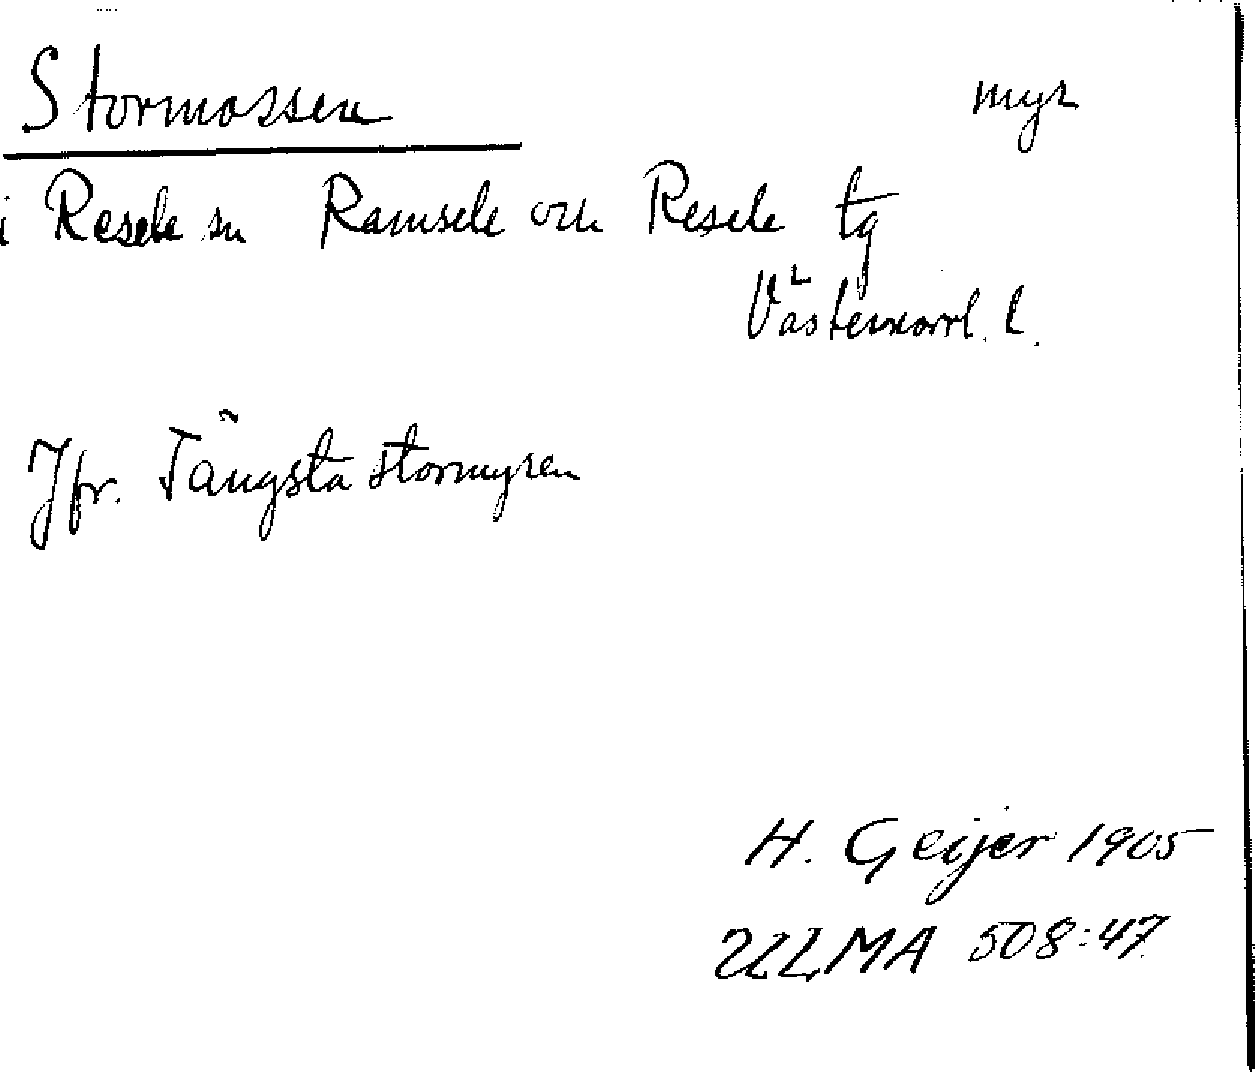 Stormossen myr
i Resele sn Ramsele och Resele tg
Västernorrl. l.
Jfr. Tängsta stormyren
H. Geijer 1905
ULMA 508:47